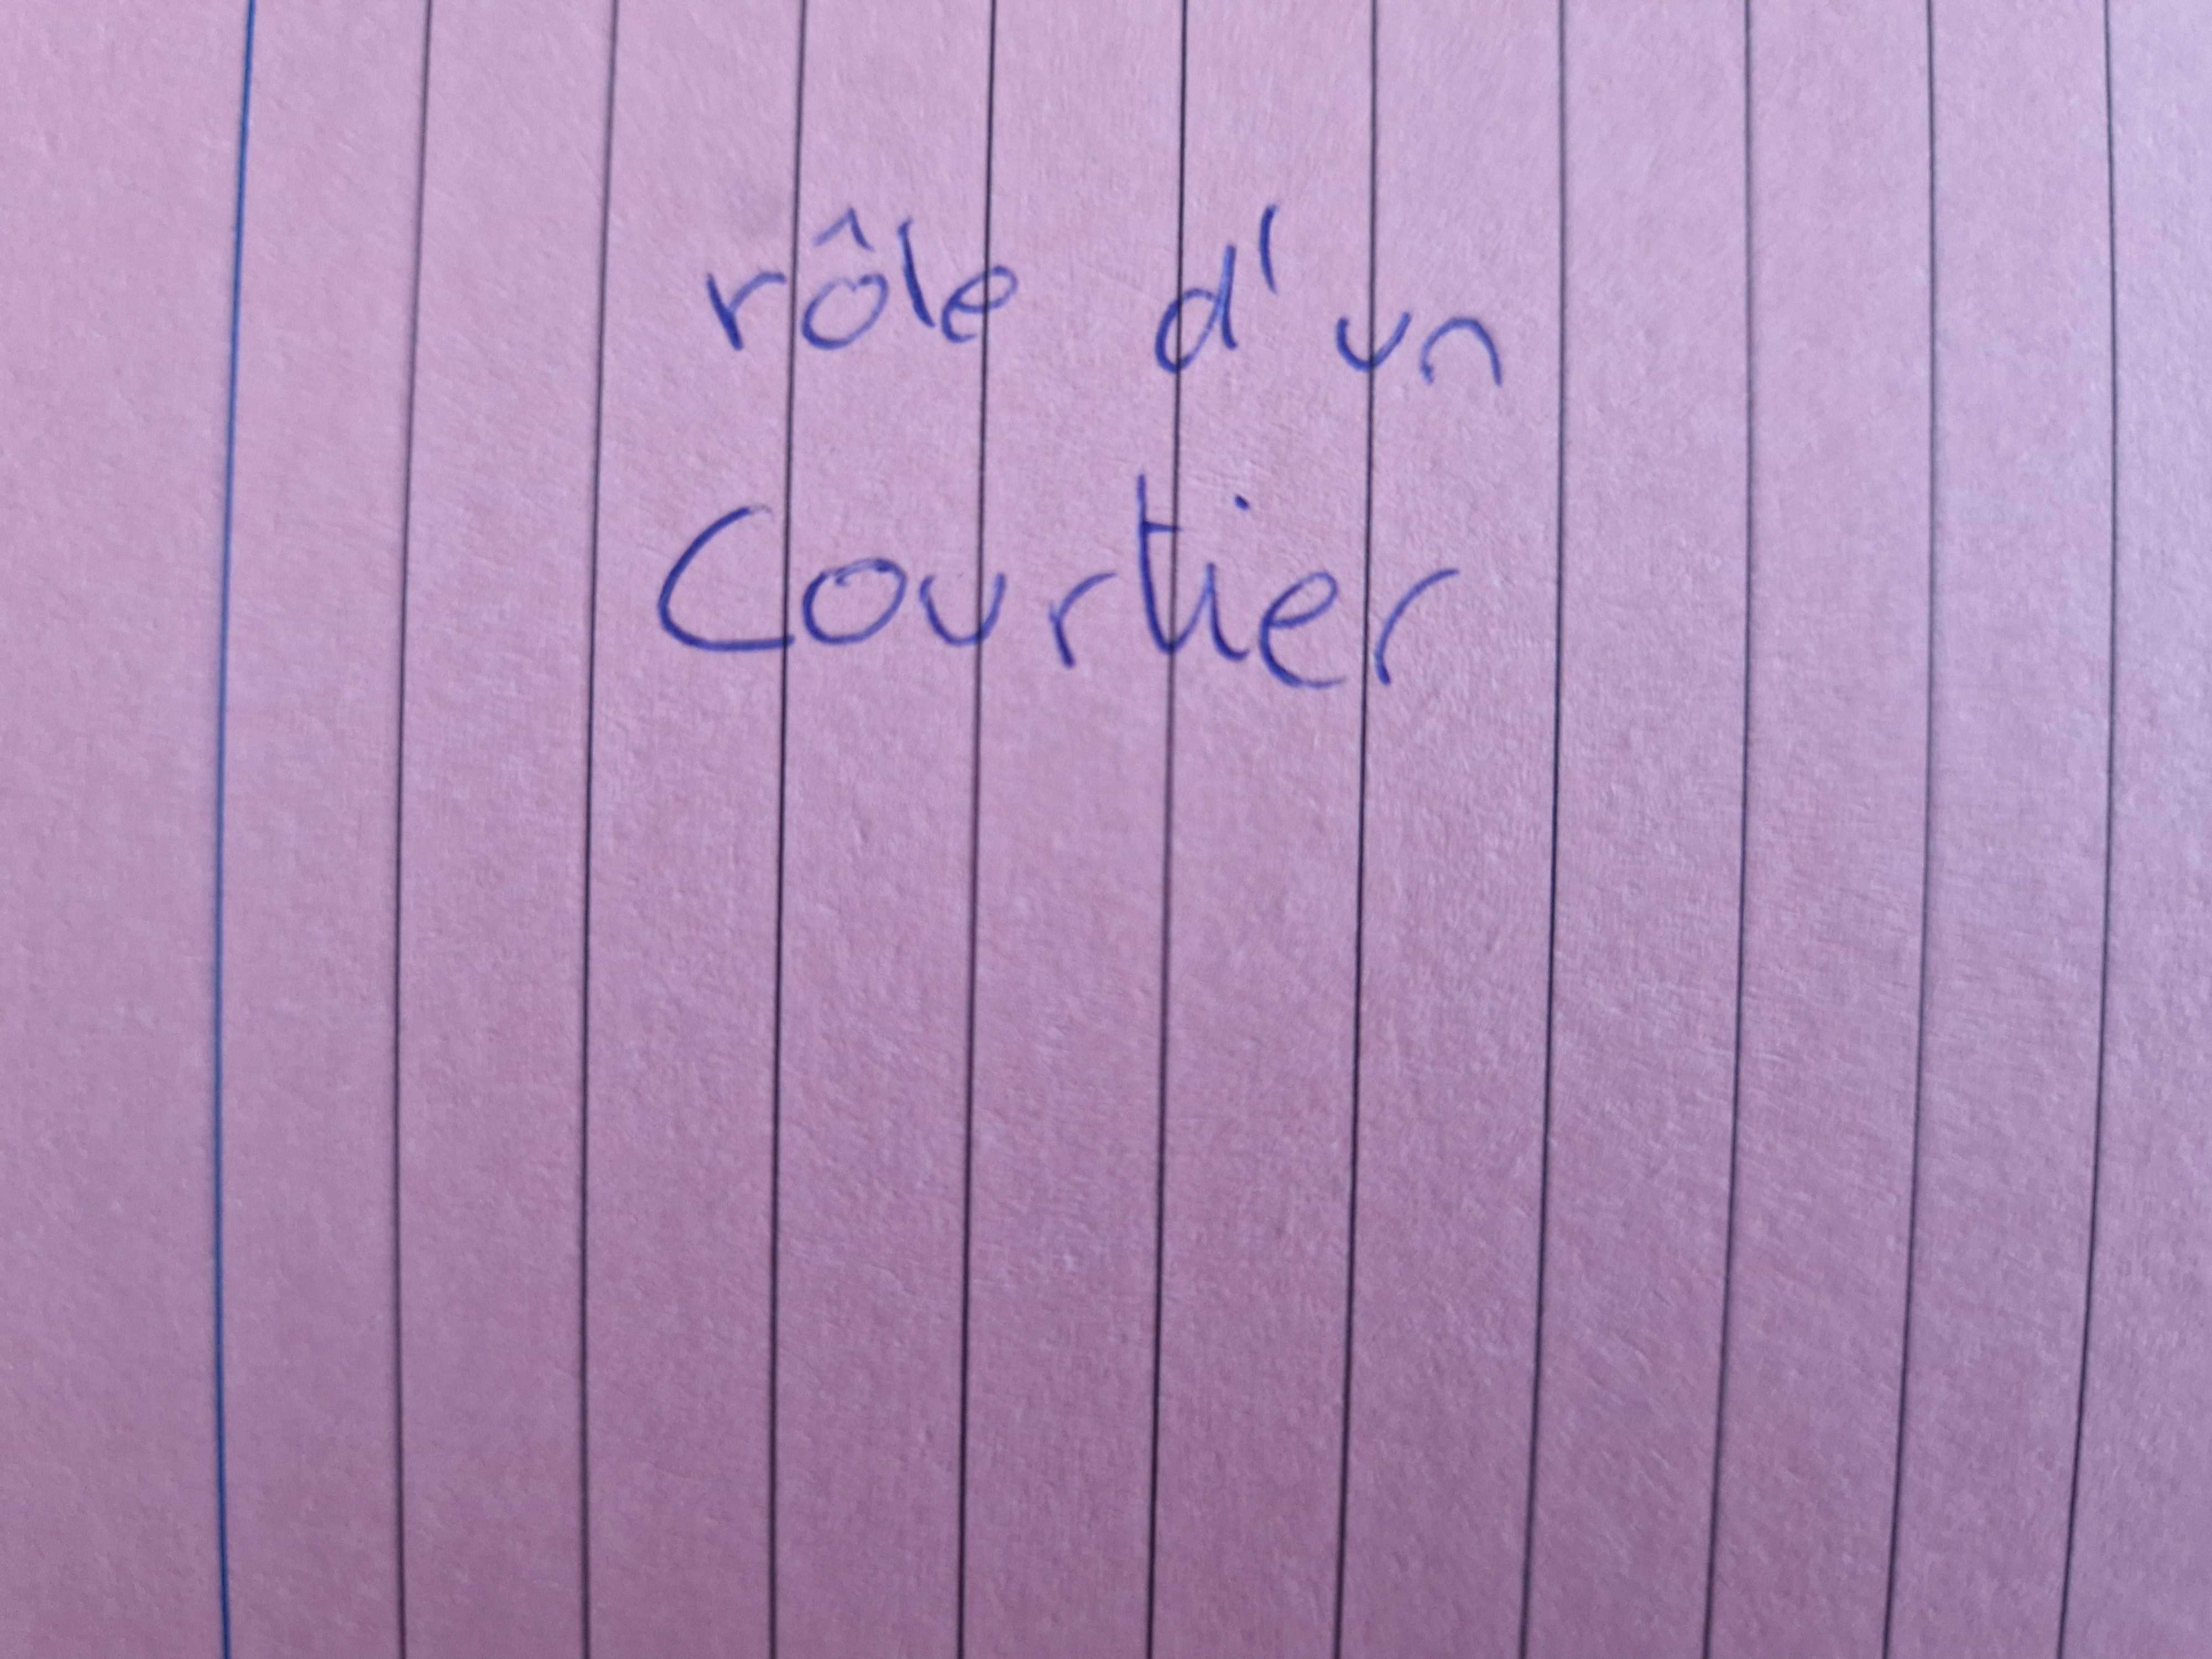 rôle d'un
Courtier